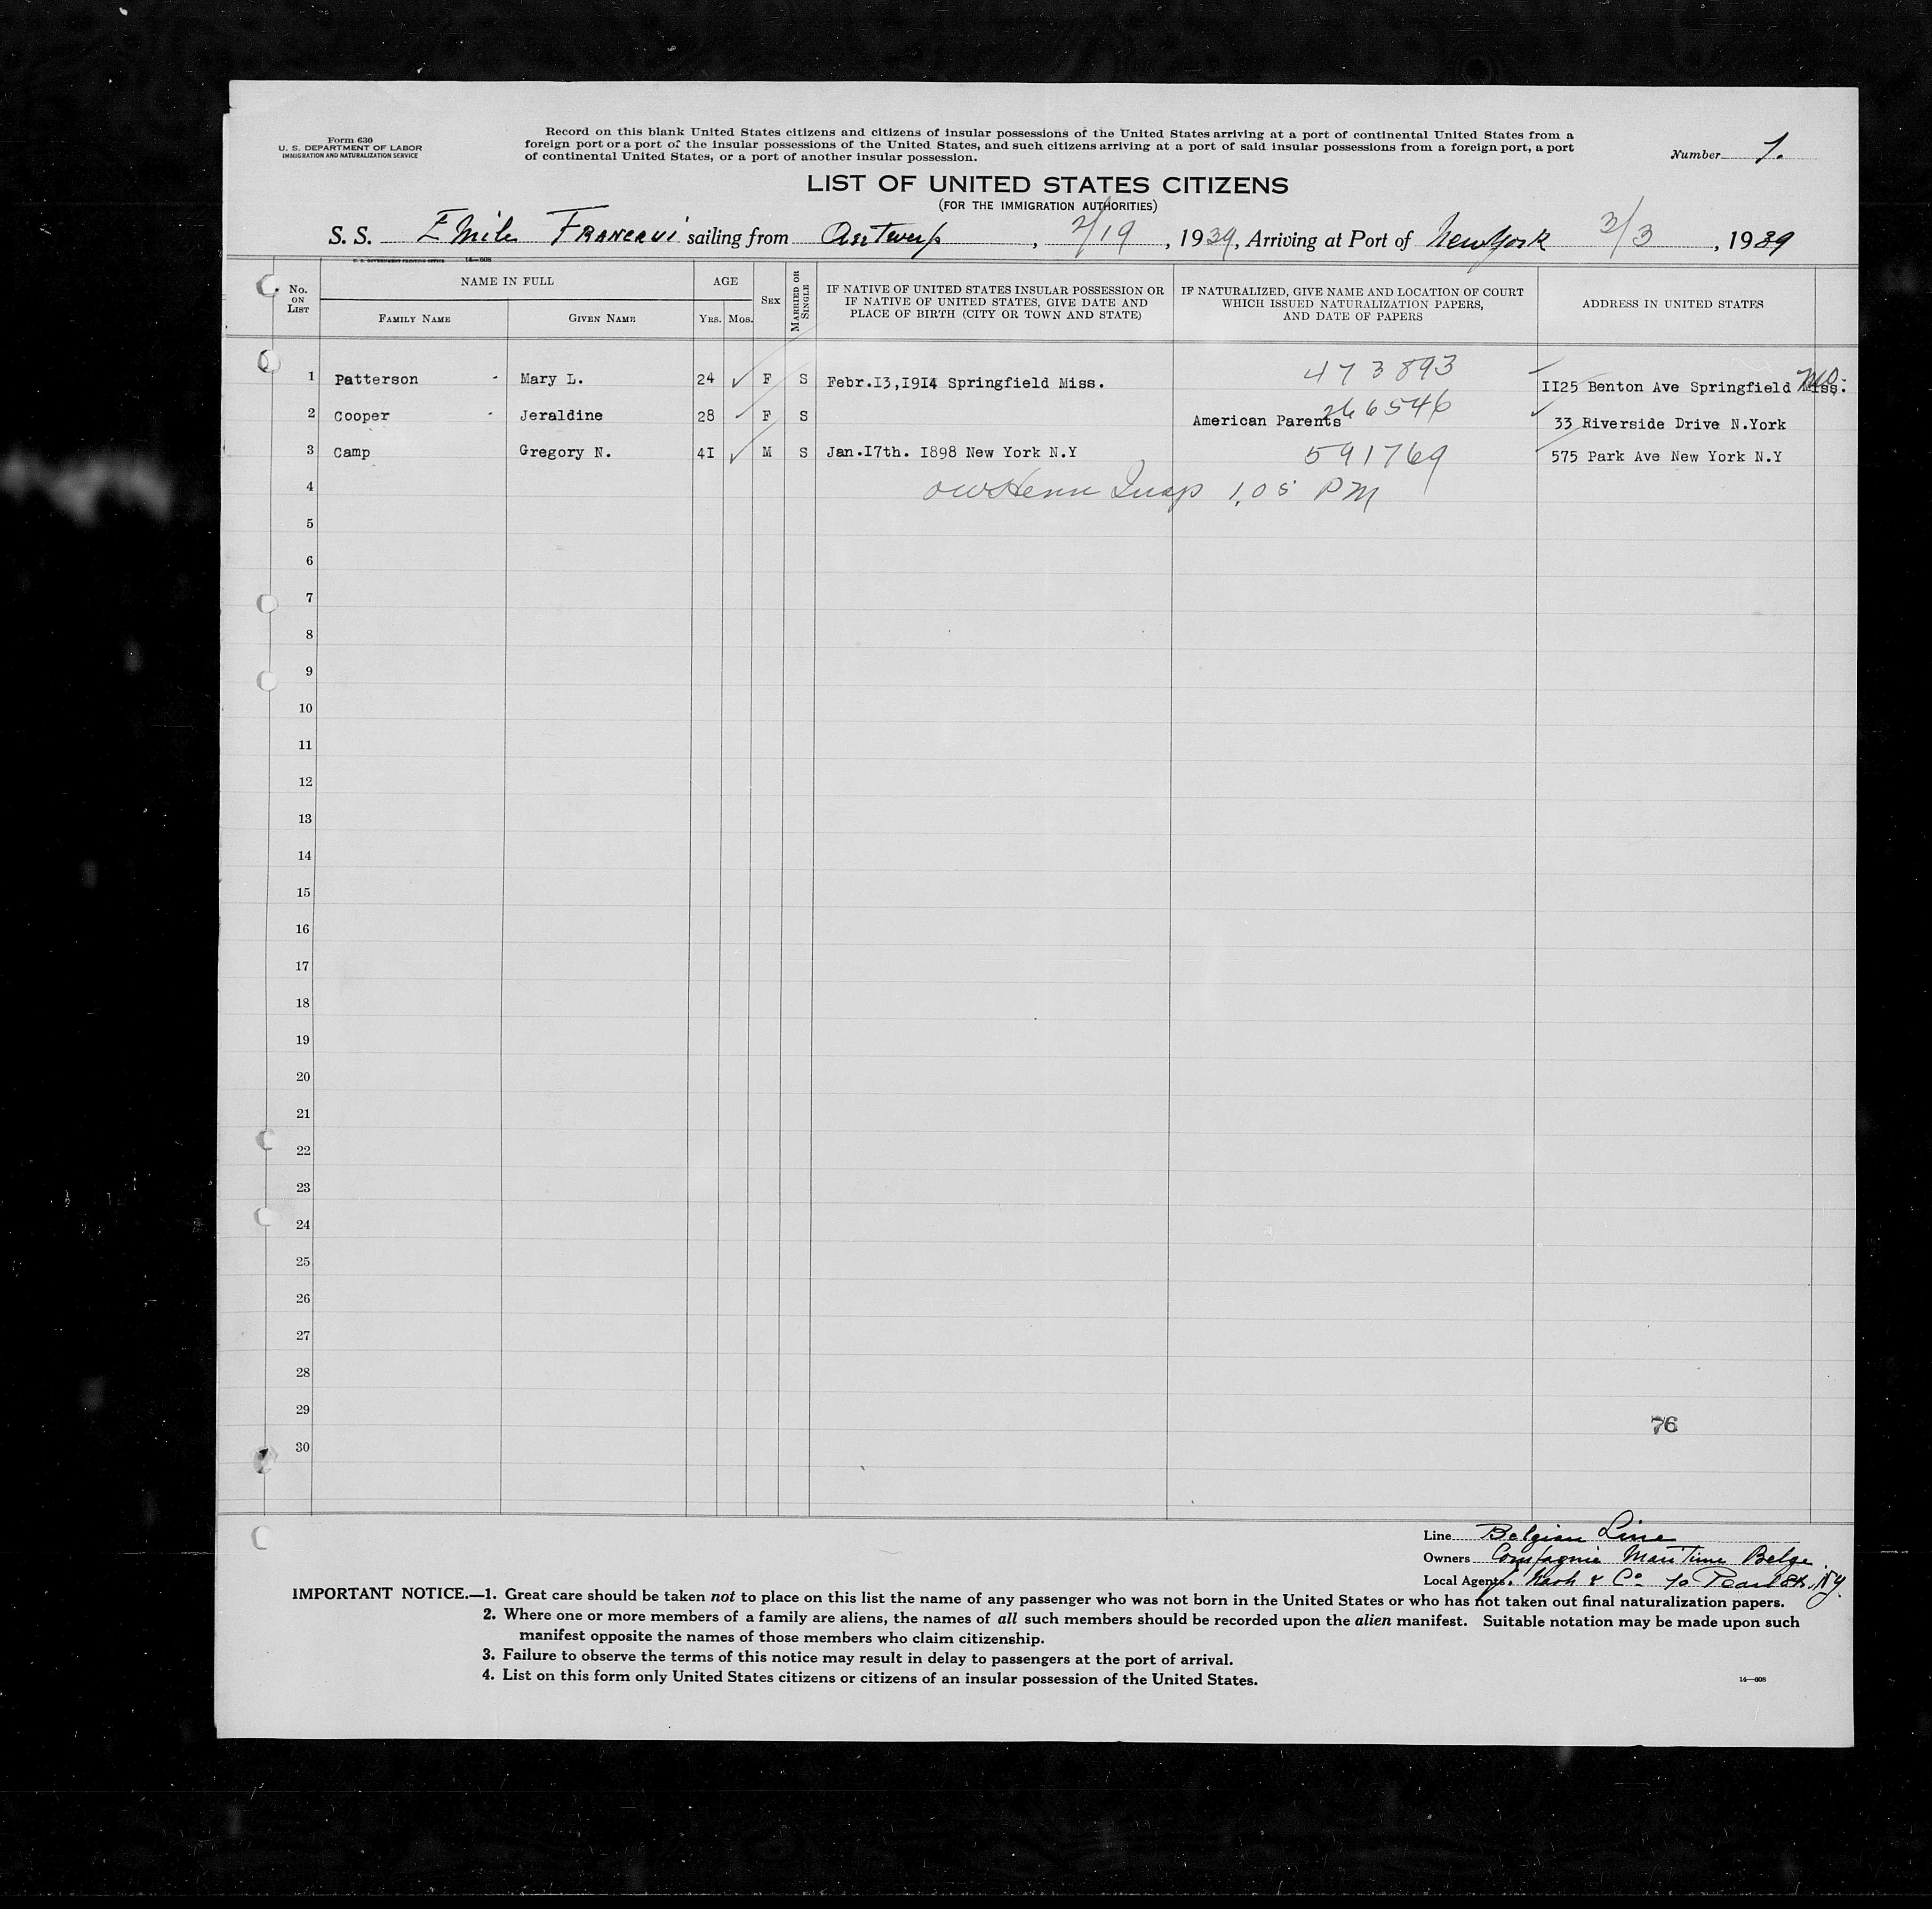 Form 630
U. S. DEPARTMENT OF LABOR
IMMIGRATION AND NATURALIZATION SERVICE
Record on this blank United States citizens and citizens of insular possessions of the United States arriving at a port of continental United States from a
foreign port or a port of the insular possessions of the United States, and such citizens arriving at a port of said insular possessions from a foreign port, a port
of continental United States, or a port of another insular possession.
Number 1.
LIST OF UNITED STATES CITIZENS
(FOR THE IMMIGRATION AUTHORITIES)
S. S. Emile Francqui sailing from Antwerp, 2/19, 1939, Arriving at Port of New York 3/3, 1939
U. S. GOVERNMENT PRINTING OFFICE 14—608
No. ON LIST
NAME IN FULL
FAMILY NAME
GIVEN NAME
AGE
YRS. MOS.
SEX
MARRIED OR SINGLE
IF NATIVE OF UNITED STATES INSULAR POSSESSION OR
IF NATIVE OF UNITED STATES, GIVE DATE AND
PLACE OF BIRTH (CITY OR TOWN AND STATE)
IF NATURALIZED, GIVE NAME AND LOCATION OF COURT
WHICH ISSUED NATURALIZATION PAPERS,
AND DATE OF PAPERS
ADDRESS IN UNITED STATES
1 Patterson - Mary L. 24 F S Febr.I3,I9I4 Springfield Miss. 473893 II25 Benton Ave Springfield Miss. Mo.
2 Cooper - Jeraldine 28 F S American Parents 266546 33 Riverside Drive N.York
3 Camp Gregory N. 4I M S Jan.I7th. I898 New York N.Y 591769 575 Park Ave New York N.Y
4 Insp 1,05 PM
5
6
7
8
9
10
11
12
13
14
15
16
17
18
19
20
21
22
23
24
25
26
27
28
29
76
30
Line Belgian Line
Owners Compagnie Maritime Belge
Local Agents & Co Pearl St. N.Y.
IMPORTANT NOTICE.—1. Great care should be taken not to place on this list the name of any passenger who was not born in the United States or who has not taken out final naturalization papers.
2. Where one or more members of a family are aliens, the names of all such members should be recorded upon the alien manifest. Suitable notation may be made upon such
manifest opposite the names of those members who claim citizenship.
3. Failure to observe the terms of this notice may result in delay to passengers at the port of arrival.
4. List on this form only United States citizens or citizens of an insular possession of the United States.
14—608